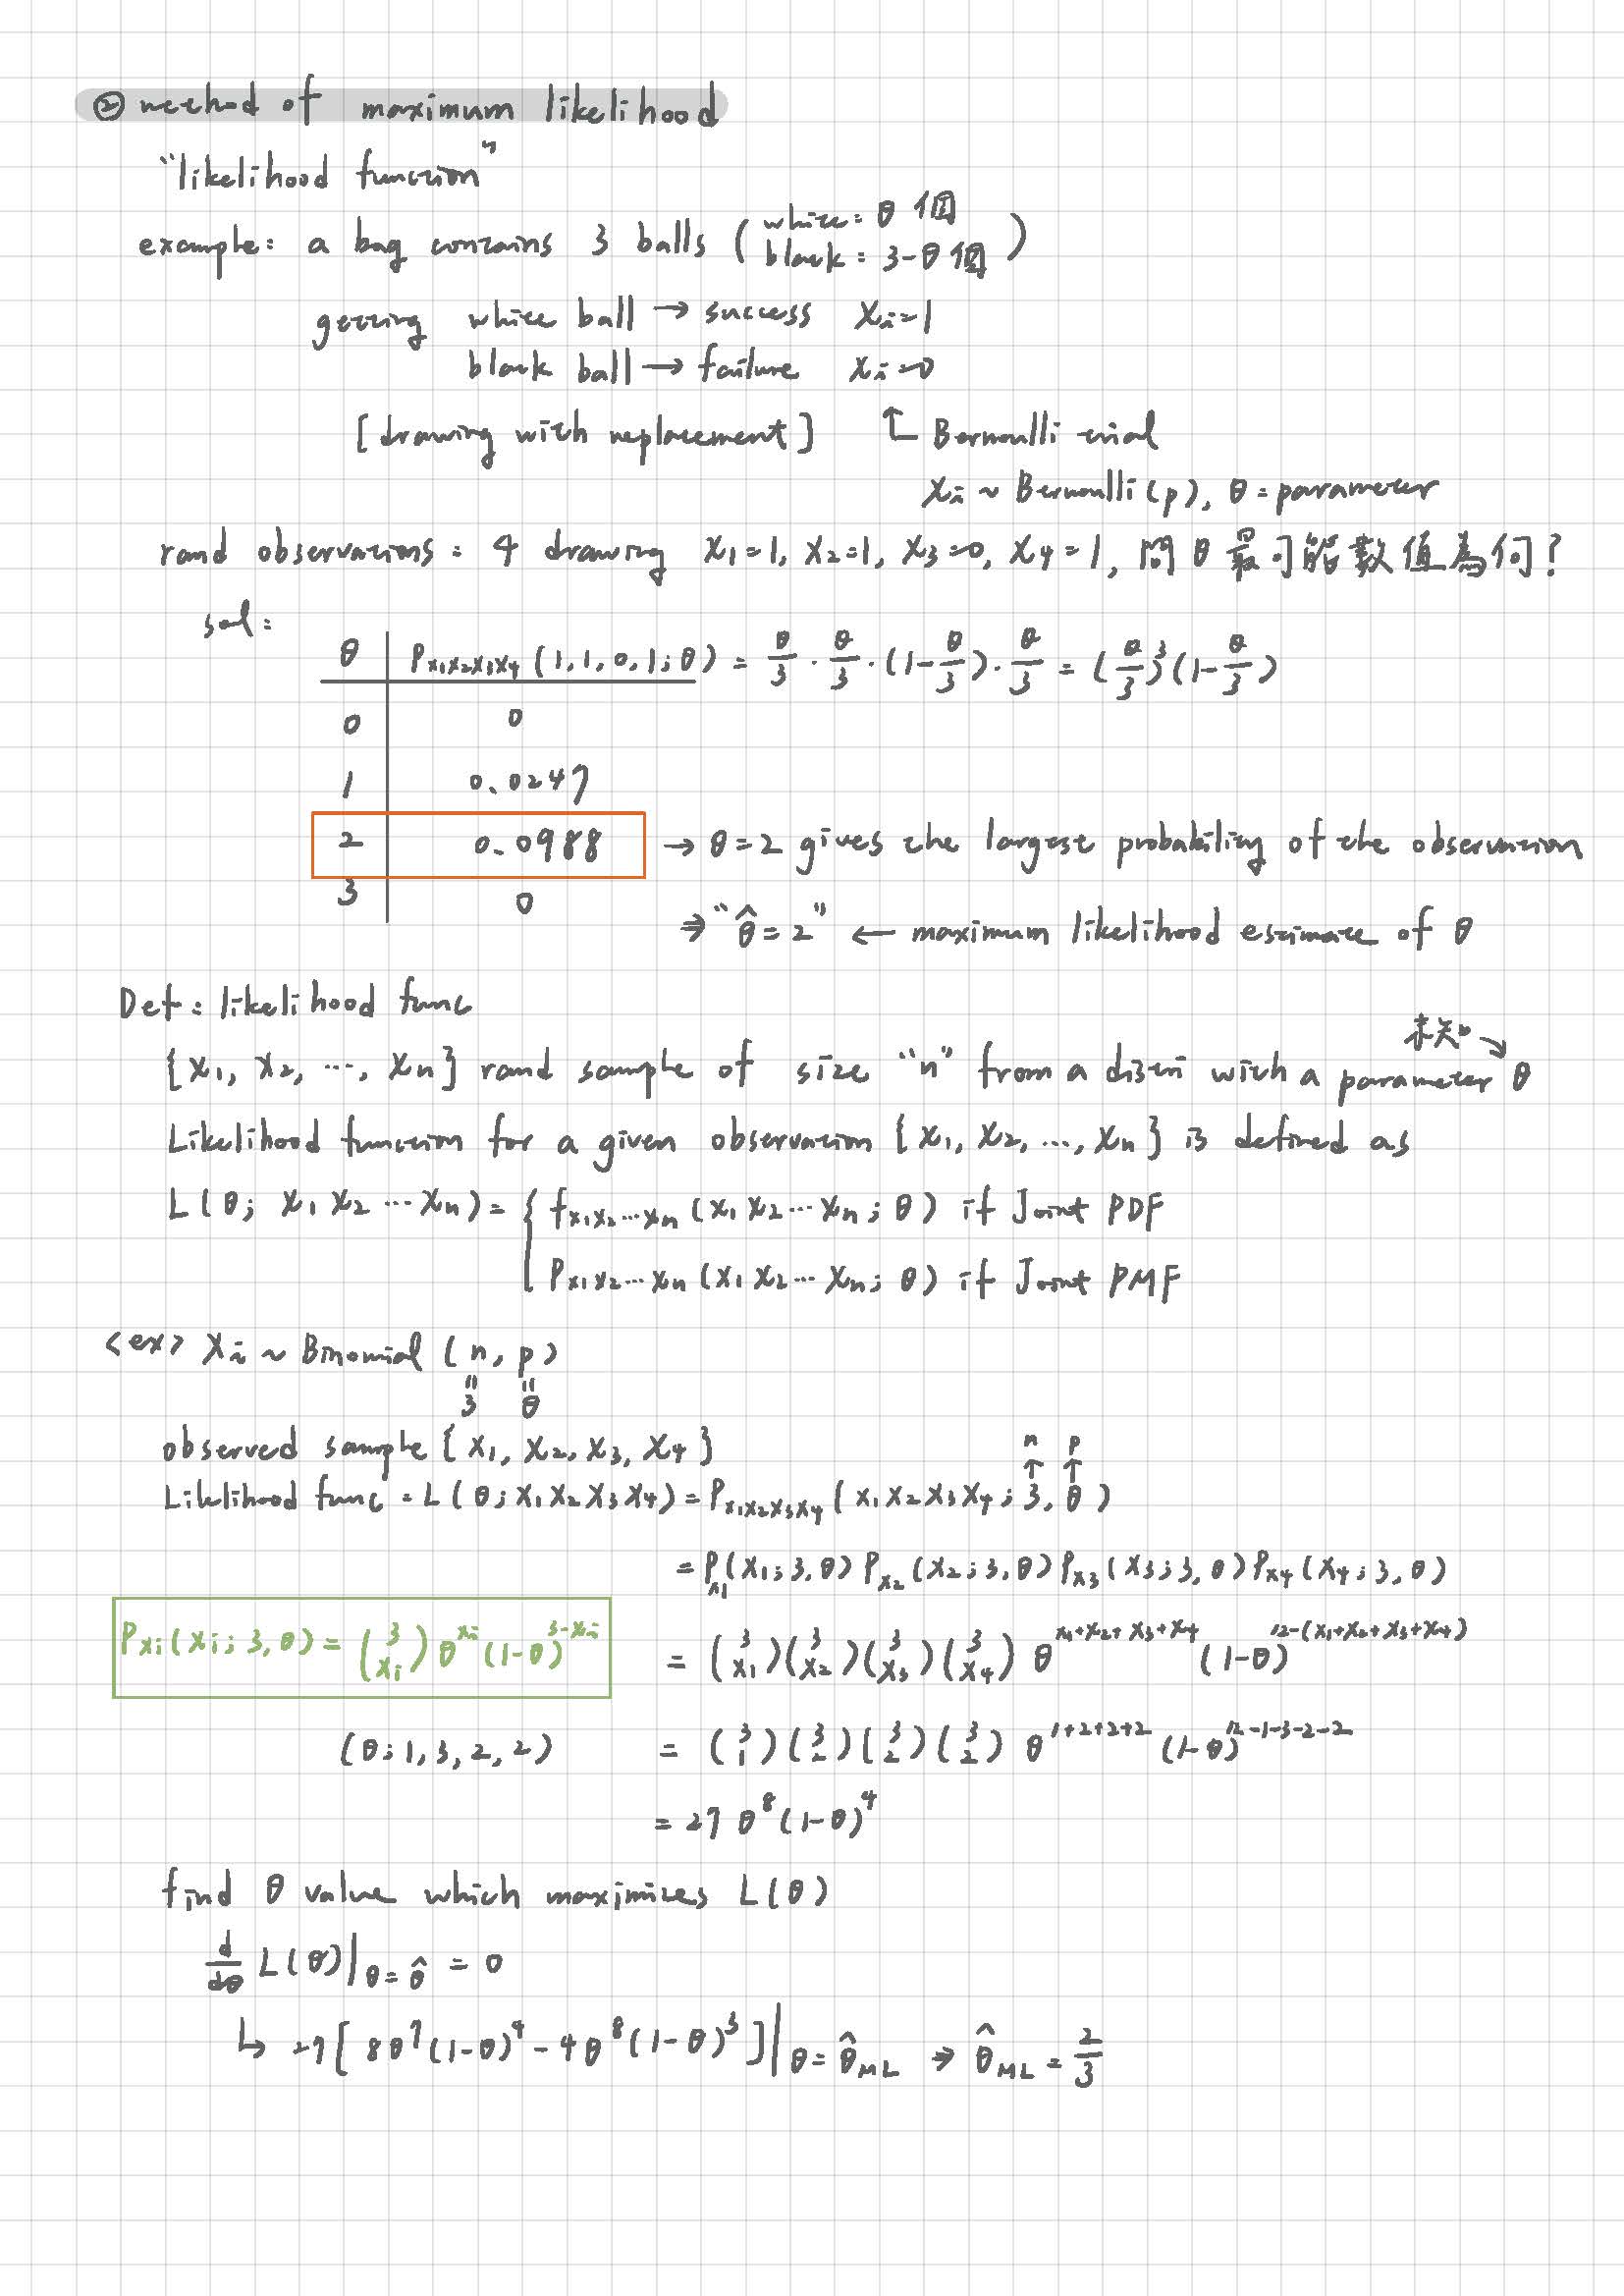 ② method of maximum likelihood
"likelihood function"
example: a bag contains 3 balls (white: θ 個
black: 3-θ 個)
getting white ball → success Xi=1
black ball → failure Xi=0
[drawing with replacement] ↑ Bernoulli trial
Xi ~ Bernoulli(p), θ = parameter
rand observations: 4 drawing X1=1, X2=1, X3=0, X4=1, 問 θ 最可能數值為何?
sol:
θ | P_{X1X2X3X4}(1,1,0,1;θ) = θ/3 · θ/3 · (1-θ/3) · θ/3 = (θ/3)^3 (1-θ/3)
0 | 0
1 | 0.0247
2 | 0.0988 → θ=2 gives the largest probability of the observation
3 | 0
⇒ "θ̂=2" ← maximum likelihood estimate of θ
Def: likelihood func
未知
{X1, X2, ..., Xn} rand sample of size "n" from a distri with a parameter θ
Likelihood function for a given observation {x1, x2, ..., xn} is defined as
L(θ; x1 x2 ... xn) = { f_{X1X2...Xn}(x1 x2 ... xn; θ) if Joint PDF
P_{X1X2...Xn}(x1 x2 ... xn; θ) if Joint PMF
<ex> Xi ~ Binomial (n, p)
" "
3 θ
observed sample {x1, x2, x3, x4}
n p
↑ ↑
Liklihood func = L(θ; x1 x2 x3 x4) = P_{X1X2X3X4}(x1 x2 x3 x4; 3, θ)
= P_{X1}(x1; 3, θ) P_{X2}(x2; 3, θ) P_{X3}(x3; 3, θ) P_{X4}(x4; 3, θ)
P_{Xi}(xi; 3, θ) = (3 xi) θ^{xi} (1-θ)^{3-xi}
= (3 x1)(3 x2)(3 x3)(3 x4) θ^{x1+x2+x3+x4} (1-θ)^{12-(x1+x2+x3+x4)}
(θ; 1, 3, 2, 2) = (3 1)(3 2)(3 2)(3 2) θ^{1+2+2+2} (1-θ)^{12-1-3-2-2}
= 27 θ^8 (1-θ)^4
find θ value which maximizes L(θ)
d/dθ L(θ)|_{θ=θ̂} = 0
↳ 27[8θ^7(1-θ)^4 - 4θ^8(1-θ)^3]|_{θ=θ̂ML} ⇒ θ̂ML = 2/3